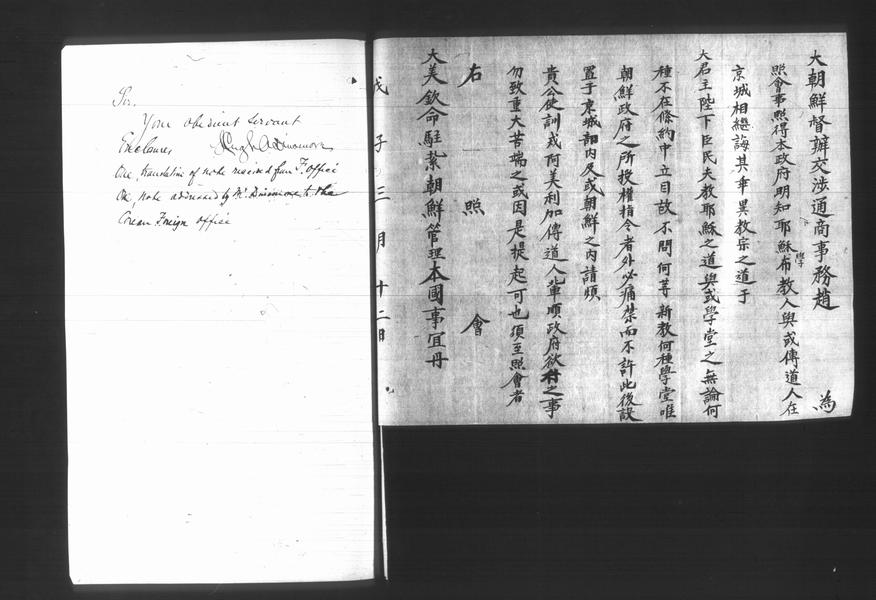 Sir,
Your obedient servant
Hugh A. Dinsmore
Enclosures
One, translation of note received from F. Office
One, note addressed by Mr. Dinsmore to the
Corean Foreign Office
大朝鮮督辦交涉通商事務趙 為
照會事照得本政府明知耶穌布教人與或傳道人在
學
京城相繼誨其軍異教宗之道于
大君主陛下臣民夫教耶穌之道與或學堂之無論何
種不在條約中立目故不問何等新教何種學堂唯
朝鮮政府之所授權指令者外必痛禁而不許此後設
置于京城部內及或朝鮮之內請煩
貴公使訓戒阿美利加傳道人輩順政府欲之事
勿致重大苦端之或因是提起可也須至照會者
右 照 會
大美欽命駐紮朝鮮管理本國事宜丹
戊子三月十二日